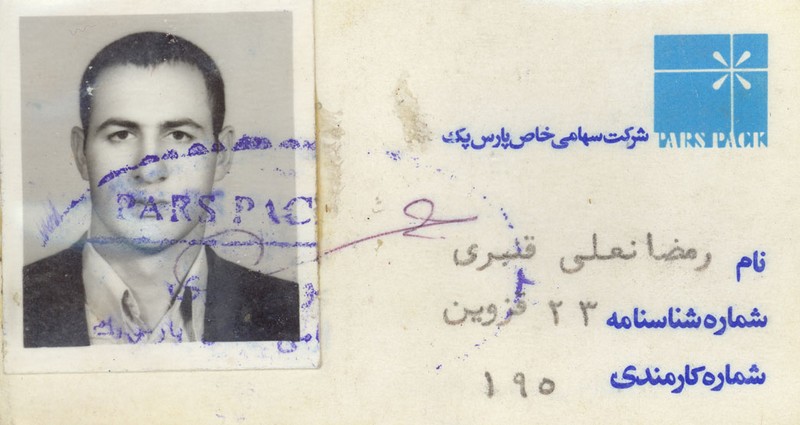 PARS PACK
شرکت سهامی خاص پارس پک
PARS PACK
نام رمضانعلی قنبری
شماره شناسنامه ۲۳ قزوین
شماره کارمندی ۱۹۵
پارس پک